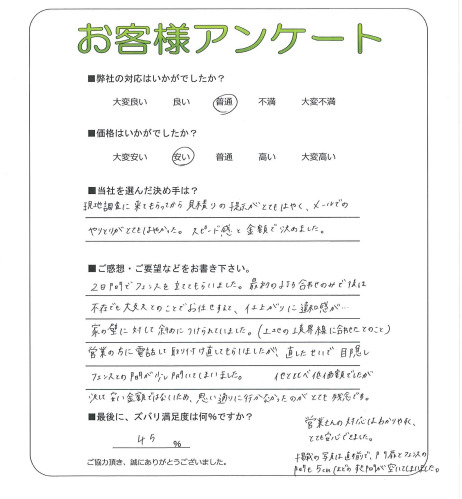 お客様アンケート
■弊社の対応はいかがでしたか？
大変良い 良い 普通 不満 大変不満
■価格はいかがでしたか？
大変安い 安い 普通 高い 大変高い
■当社を選んだ決め手は？
現地調査に来てもらってから見積りの提示がとてもはやく、メールでの
やりとりがとてもはやかった。スピード感と金額で決めました。
■ご感想・ご要望などをお書き下さい。
2日間でフェンスを立ててもらいました。最初の打ち合わせのみで後は
不在でも大丈夫とのことでお任せすると、仕上がりに違和感が…
家の壁に対して斜めにつけられていました。(土地の境界線に合わせたとのこと)
営業の方に電話して取り付け直してもらいましたが、直したせいで目隠し
フェンスとの間が少し開いてしまいました。 他と比べ低価額でしたが
決して安い金額ではないため、思い通りに行かなかったのがとても残念です。
■最後に、ズバリ満足度は何%ですか？
45 %
営業さんの対応はわかりやすく、
とても安心できました。
掲載の写真は直前で、門扉とフェンスの
間も5cmほどの空間が空いてしまいました。
ご協力頂き、誠にありがとうございました。